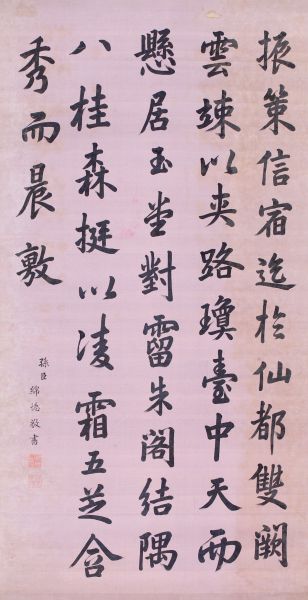 振策信宿迄於仙都雙闕
雲竦以夹路瓊臺中天而
懸居玉堂對霤朱阁結隅
八桂森挺以凌霜五芝含
秀而晨敷
孫臣綿德敬書